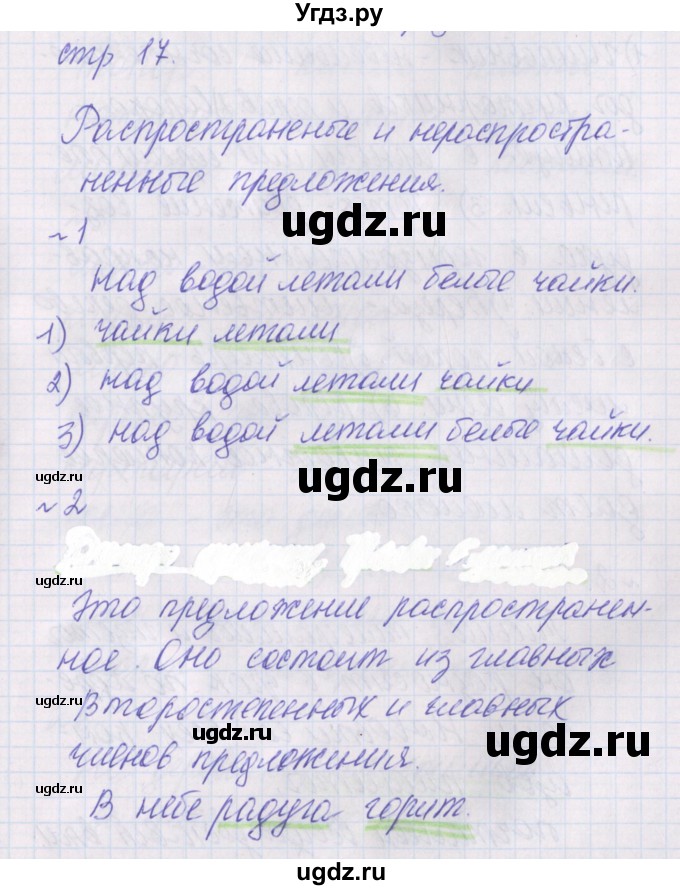 Угдз.ру
стр 17.
Распространеные и нераспростра-
ненные предложения.
ugdz.ru
~1
над водой летали белые чайки.
1) чайки летали
2) над водой летали чайки
3) над водой летали белые чайки.
ugdz.ru
ugdz.ru
~2
ugdz.ru
Это предложение распространен-
ное. Оно состоит из главных
ugdz.ru
второстепенных и главных
ugdz.ru
ugdz.ru
членов предложения.
ugdz.ru
В небе радуга горит.
ugdz.ru